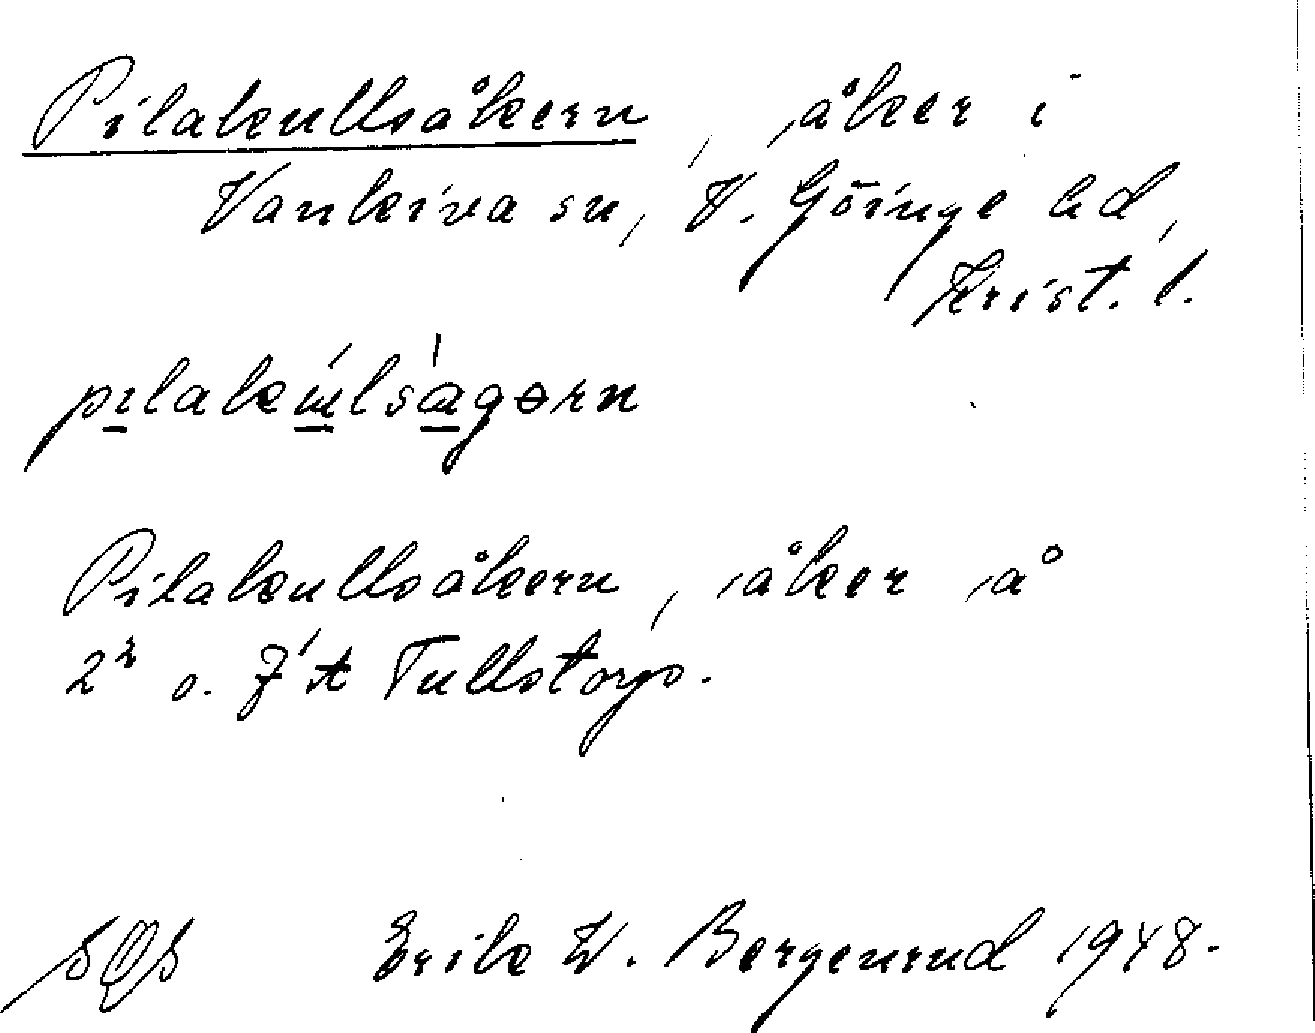 Pilakullsåkern, åker i
Vankiva sn, V. Göinge hd,
Krist. l.
pılakúlságərn
Pilakullsåkern, åker å
2² o. 7't Tullstorp.
Erik W. Bergenrud 1948.